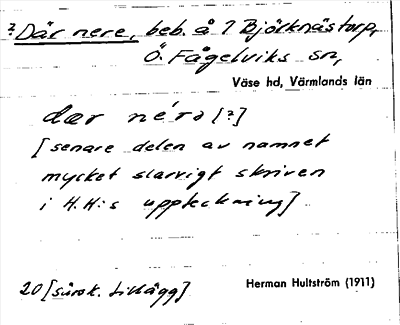 ? Där nere, beb. å 7 Björknästorp,
Ö. Fågelviks sn,
Väse hd, Värmlands län
dær nérə [?]
[senare delen av namnet
mycket slarvigt skriven
i H.H:s uppteckning]
20 [särsk. tillägg] Herman Hultström (1911)